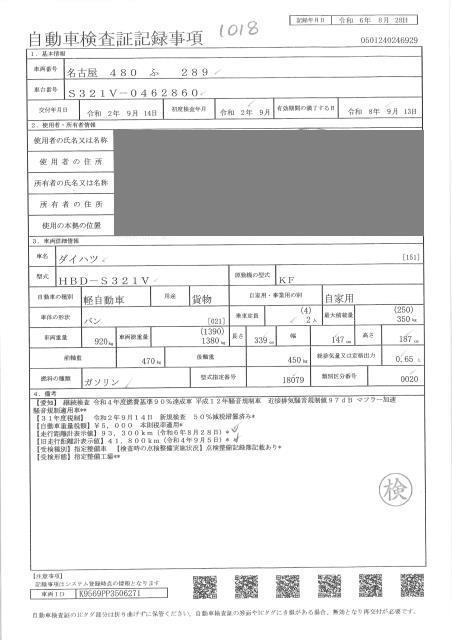 記録年月日 令和 6年 8月 28日
自動車検査証記録事項 1018
0501240246929
1. 基本情報
車両番号 名古屋 480 ふ 289
車台番号 S321V-0462860
交付年月日 令和 2年 9月 14日 初度検査年月 令和 2年 9月 有効期間の満了する日 令和 8年 9月 13日
2. 使用者・所有者情報
使用者の氏名又は名称
使用者の住所
所有者の氏名又は名称
所有者の住所
使用の本拠の位置
3. 車両詳細情報
車名 ダイハツ [151]
型式 HBD-S321V 原動機の型式 KF
自動車の種別 軽自動車 用途 貨物 自家用・事業用の別 自家用
車体の形状 バン [021] 乗車定員 (4) 2人 最大積載量 (250) 350kg
車両重量 920kg 車両総重量 (1390) 1380kg 長さ 339cm 幅 147cm 高さ 187cm
前軸重 470kg 後軸重 450kg 総排気量又は定格出力 0.65L
燃料の種類 ガソリン 型式指定番号 18079 類別区分番号 0020
4. 備考
【愛知】 継続検査 令和4年度燃費基準90%達成車 平成12年騒音規制車 近接排気騒音規制値97dB マフラー加速
騒音規制適用車**
【31年度税制】 令和2年9月14日 新規検査 50%減税措置済み*
【自動車重量税額】¥5,000 本則税率適用*
【走行距離計表示値】93,300km(令和6年8月28日)*
【旧走行距離計表示値】41,800km(令和4年9月5日)*
【受検種別】指定整備車 【検査時の点検整備実施状況】点検整備記録簿記載あり*
【受検形態】指定整備工場**
検
【注意事項】
記録事項はシステム登録時点の情報となります
車両ID K9569PP3506271
自動車検査証のICタグ部分は折り曲げずに保管ください。自動車検査証の券面やICタグにき損がある場合、無効となり再交付が必要です。